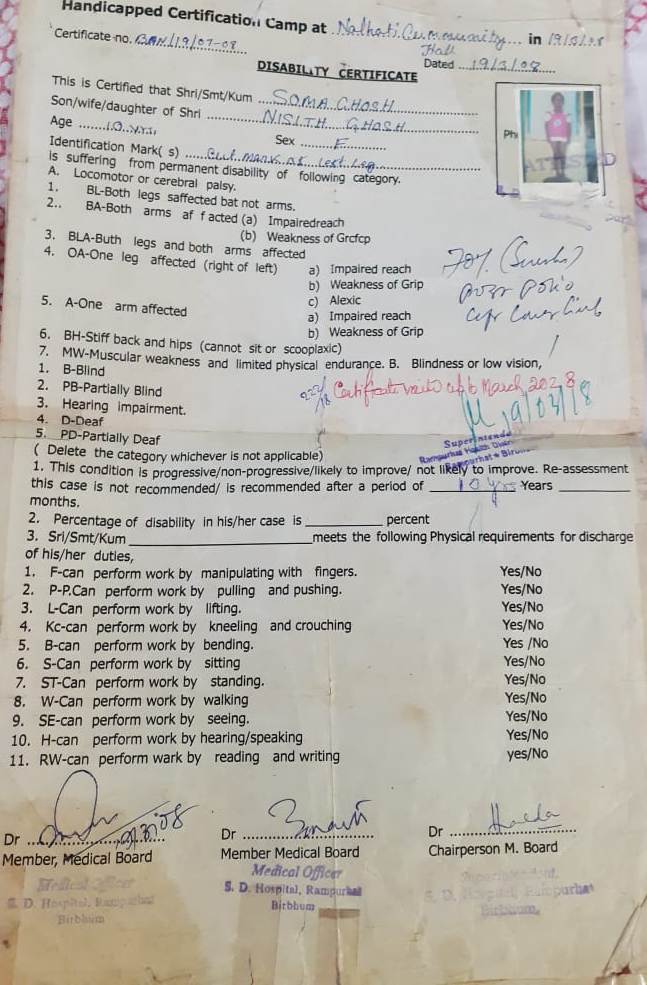 Handicapped Certification Camp at Nalhati Community Hall in 19/3/08
Certificate no. BAN/119/07-08
Dated 19/3/08
DISABILITY CERTIFICATE
This is Certified that Shri/Smt/Kum SOMA GHOSH
Son/wife/daughter of Shri NISITH GHOSH
Age 10 yrs, Sex F
Identification Mark( s) Cut mark at left Leg
is suffering from permanent disability of following category.
ATTESTED
A. Locomotor or cerebral palsy.
1. BL-Both legs saffected bat not arms.
2.. BA-Both arms af f acted (a) Impairedreach
(b) Weakness of Grcfcp
3. BLA-Buth legs and both arms affected
4. OA-One leg affected (right of left) a) Impaired reach
b) Weakness of Grip
c) Alexic
70%
Post Polio
5. A-One arm affected a) Impaired reach
b) Weakness of Grip
6. BH-Stiff back and hips (cannot sit or scooplaxic)
7. MW-Muscular weakness and limited physical endurance. B. Blindness or low vision,
1. B-Blind
2. PB-Partially Blind
Certificate valid up to March 2028
3. Hearing impairment.
4. D-Deaf
19/03/18
5. PD-Partially Deaf
Superintendent
( Delete the category whichever is not applicable)
1. This condition is progressive/non-progressive/likely to improve/ not likely to improve. Re-assessment
this case is not recommended/ is recommended after a period of 10 yrs Years
months.
2. Percentage of disability in his/her case is percent
3. Sri/Smt/Kum meets the following Physical requirements for discharge
of his/her duties,
1. F-can perform work by manipulating with fingers. Yes/No
2. P-P.Can perform work by pulling and pushing. Yes/No
3. L-Can perform work by lifting. Yes/No
4. Kc-can perform work by kneeling and crouching Yes/No
5. B-can perform work by bending. Yes /No
6. S-Can perform work by sitting Yes/No
7. ST-Can perform work by standing. Yes/No
8. W-Can perform work by walking Yes/No
9. SE-can perform work by seeing. Yes/No
10. H-can perform work by hearing/speaking Yes/No
11. RW-can perform wark by reading and writing yes/No
Dr 19/3/08 Dr Dr
Member, Medical Board Member Medical Board Chairperson M. Board
Medical Officer Medical Officer Superintendent,
S. D. Hospital, Rampurhat S. D. Hospital, Rampurhat S. D. Hospital, Rampurhat
Birbhum Birbhum Birbhum,